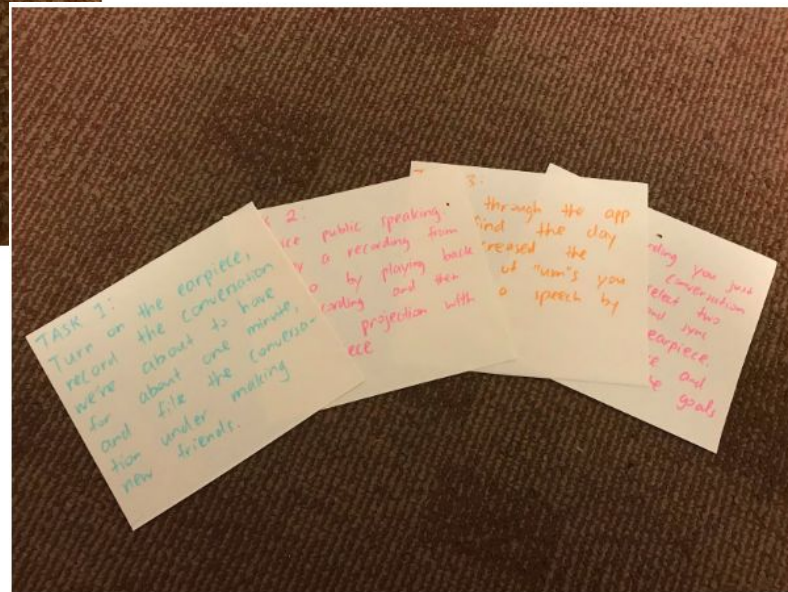 TASK 1:
Turn on the earpiece,
record the conversation
we're about to have
for about one minute,
and file the conversa-
tion under making
new friends.
2:
public speaking.
a recording from
by playing back
and then
projection with
3:
through the app
find the day
the
of "um"s you
a speech by
you just
conversation
select two
and sync
earpiece.
and
goals